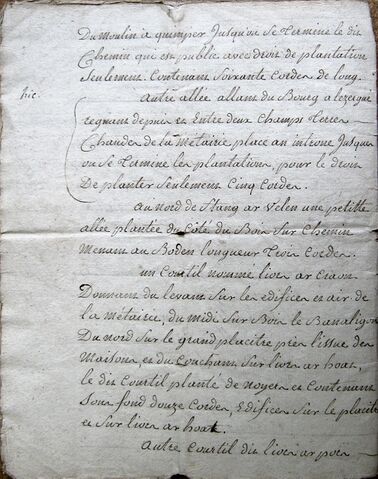 Du moulin a quimper Jusqu'ou se termine le dit
Chemin qui est public avec droit de plantation
seulement. Contenant soixante Cordes de long.
hic.
Autre allée allant du Bourg a lezergué
regnant depuis et Entre deux Champs terre
Chaudes de la metairie place an introne Jusques
ou se termine les plantations, pour le droit
De planter seulement Cinq Cordes.
au nord de Stang ar velen une petitte
allée plantée du Côté du Bois sur Chemin
menant au Boden longueur trois Cordes.
un Courtil nomme liors ar Craou
Donnant du levant sur les edifices et air de
la métairie, du midi sur Bois le Banaligou
Du nord sur le grand placitre pres l'issue des
maisons, et du Couchant sur liors ar hoat,
le dit Courtil plante de noyers et Contenant
sous fond douze Cordes, Edifices sur le placitre
et sur liors ar hoat.
Autre Courtil dit liors ar poer